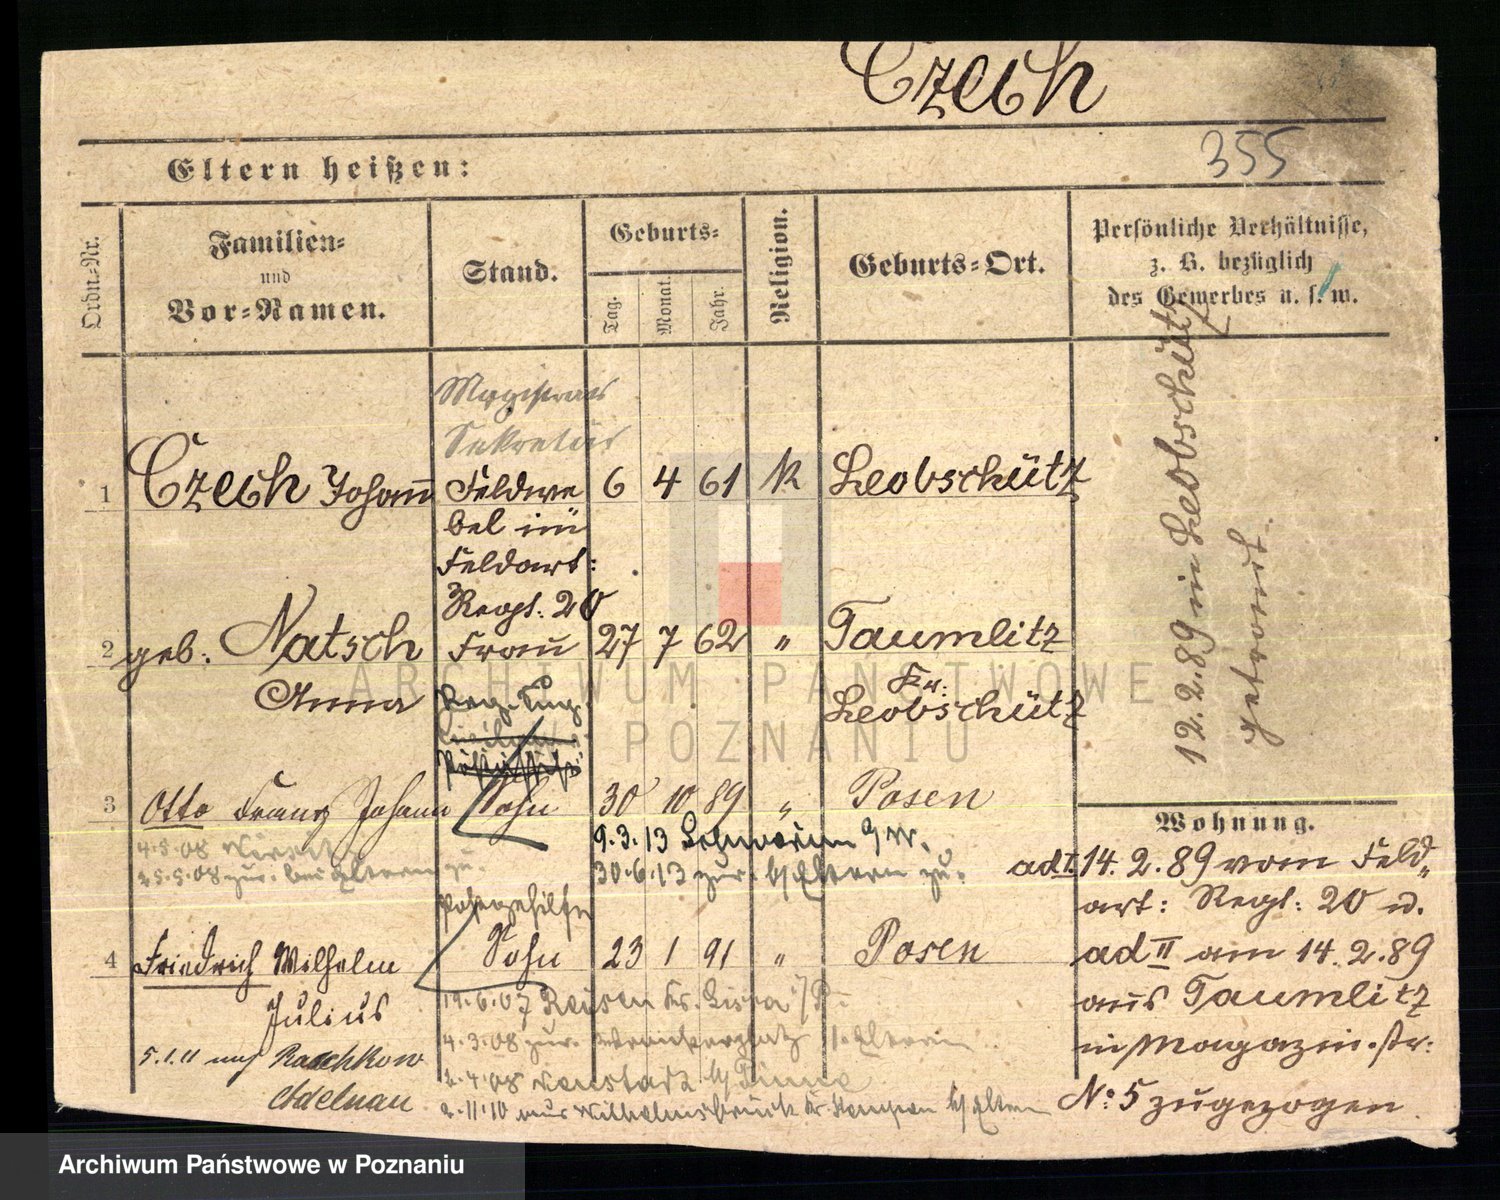 Czech
355
Eltern heißen:
Ordn.-Nr.
Familien-
und
Vor-Namen.
Stand.
Geburts-
Tag.
Monat.
Jahr.
Religion.
Geburts-Ort.
Persönliche Verhältnisse,
z. B. bezüglich
des Gewerbes u. s. w.
Magistrats
Sekretär
1 Czech Johann Feldwe 6 4 61 K Leobschütz
bel im
Feldart:
Regt. 20
2 geb. Natsch Frau 27 7 62 " Taumlitz
Anna
Kr.
Leobschütz
12.2.89 in Leobschütz
getraut.
3 Otto Franz Johann Sohn 30 10 89 " Posen
4.5.08
25.5.08 zur. bei Eltern zu.
9.3.13 Schwerin a/W.
30.6.13 zur. b/Eltern zu.
Postgehilfe
4 Friedrich Wilhelm Sohn 23 1 91 " Posen
Julius
5.1.11 nach Raschkow
Adelnau
19.6.07 Reisen Kr. Lissa i/P.
4.3.08 zur. Eltern
2.4.08 Neustadt b/Pinne
2.11.10 aus Wilhelmsbrück Kr. Kempen b/Eltern
Wohnung.
ad I. 14.2.89 vom Feld-
art: Regt: 20 u.
ad II am 14.2.89
aus Taumlitz
in Magazin-str:
No 5 zugezogen.
ARCHIWUM PAŃSTWOWE
W POZNANIU
Archiwum Państwowe w Poznaniu